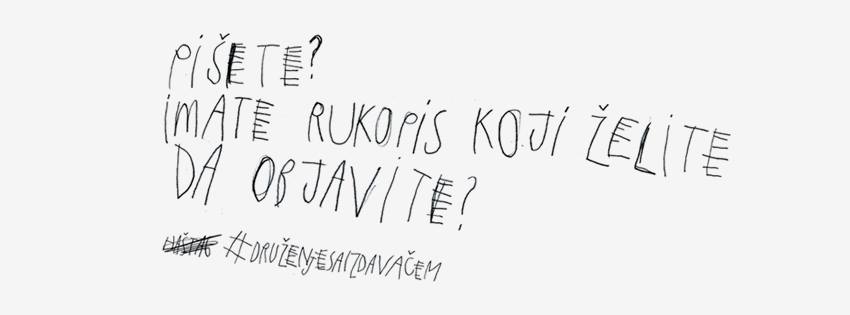 PIŠETE?
IMATE RUKOPIS KOJI ŽELITE
DA OBJAVITE?
HAŠTAG #DRUŽENJESAIZDAVAČEM